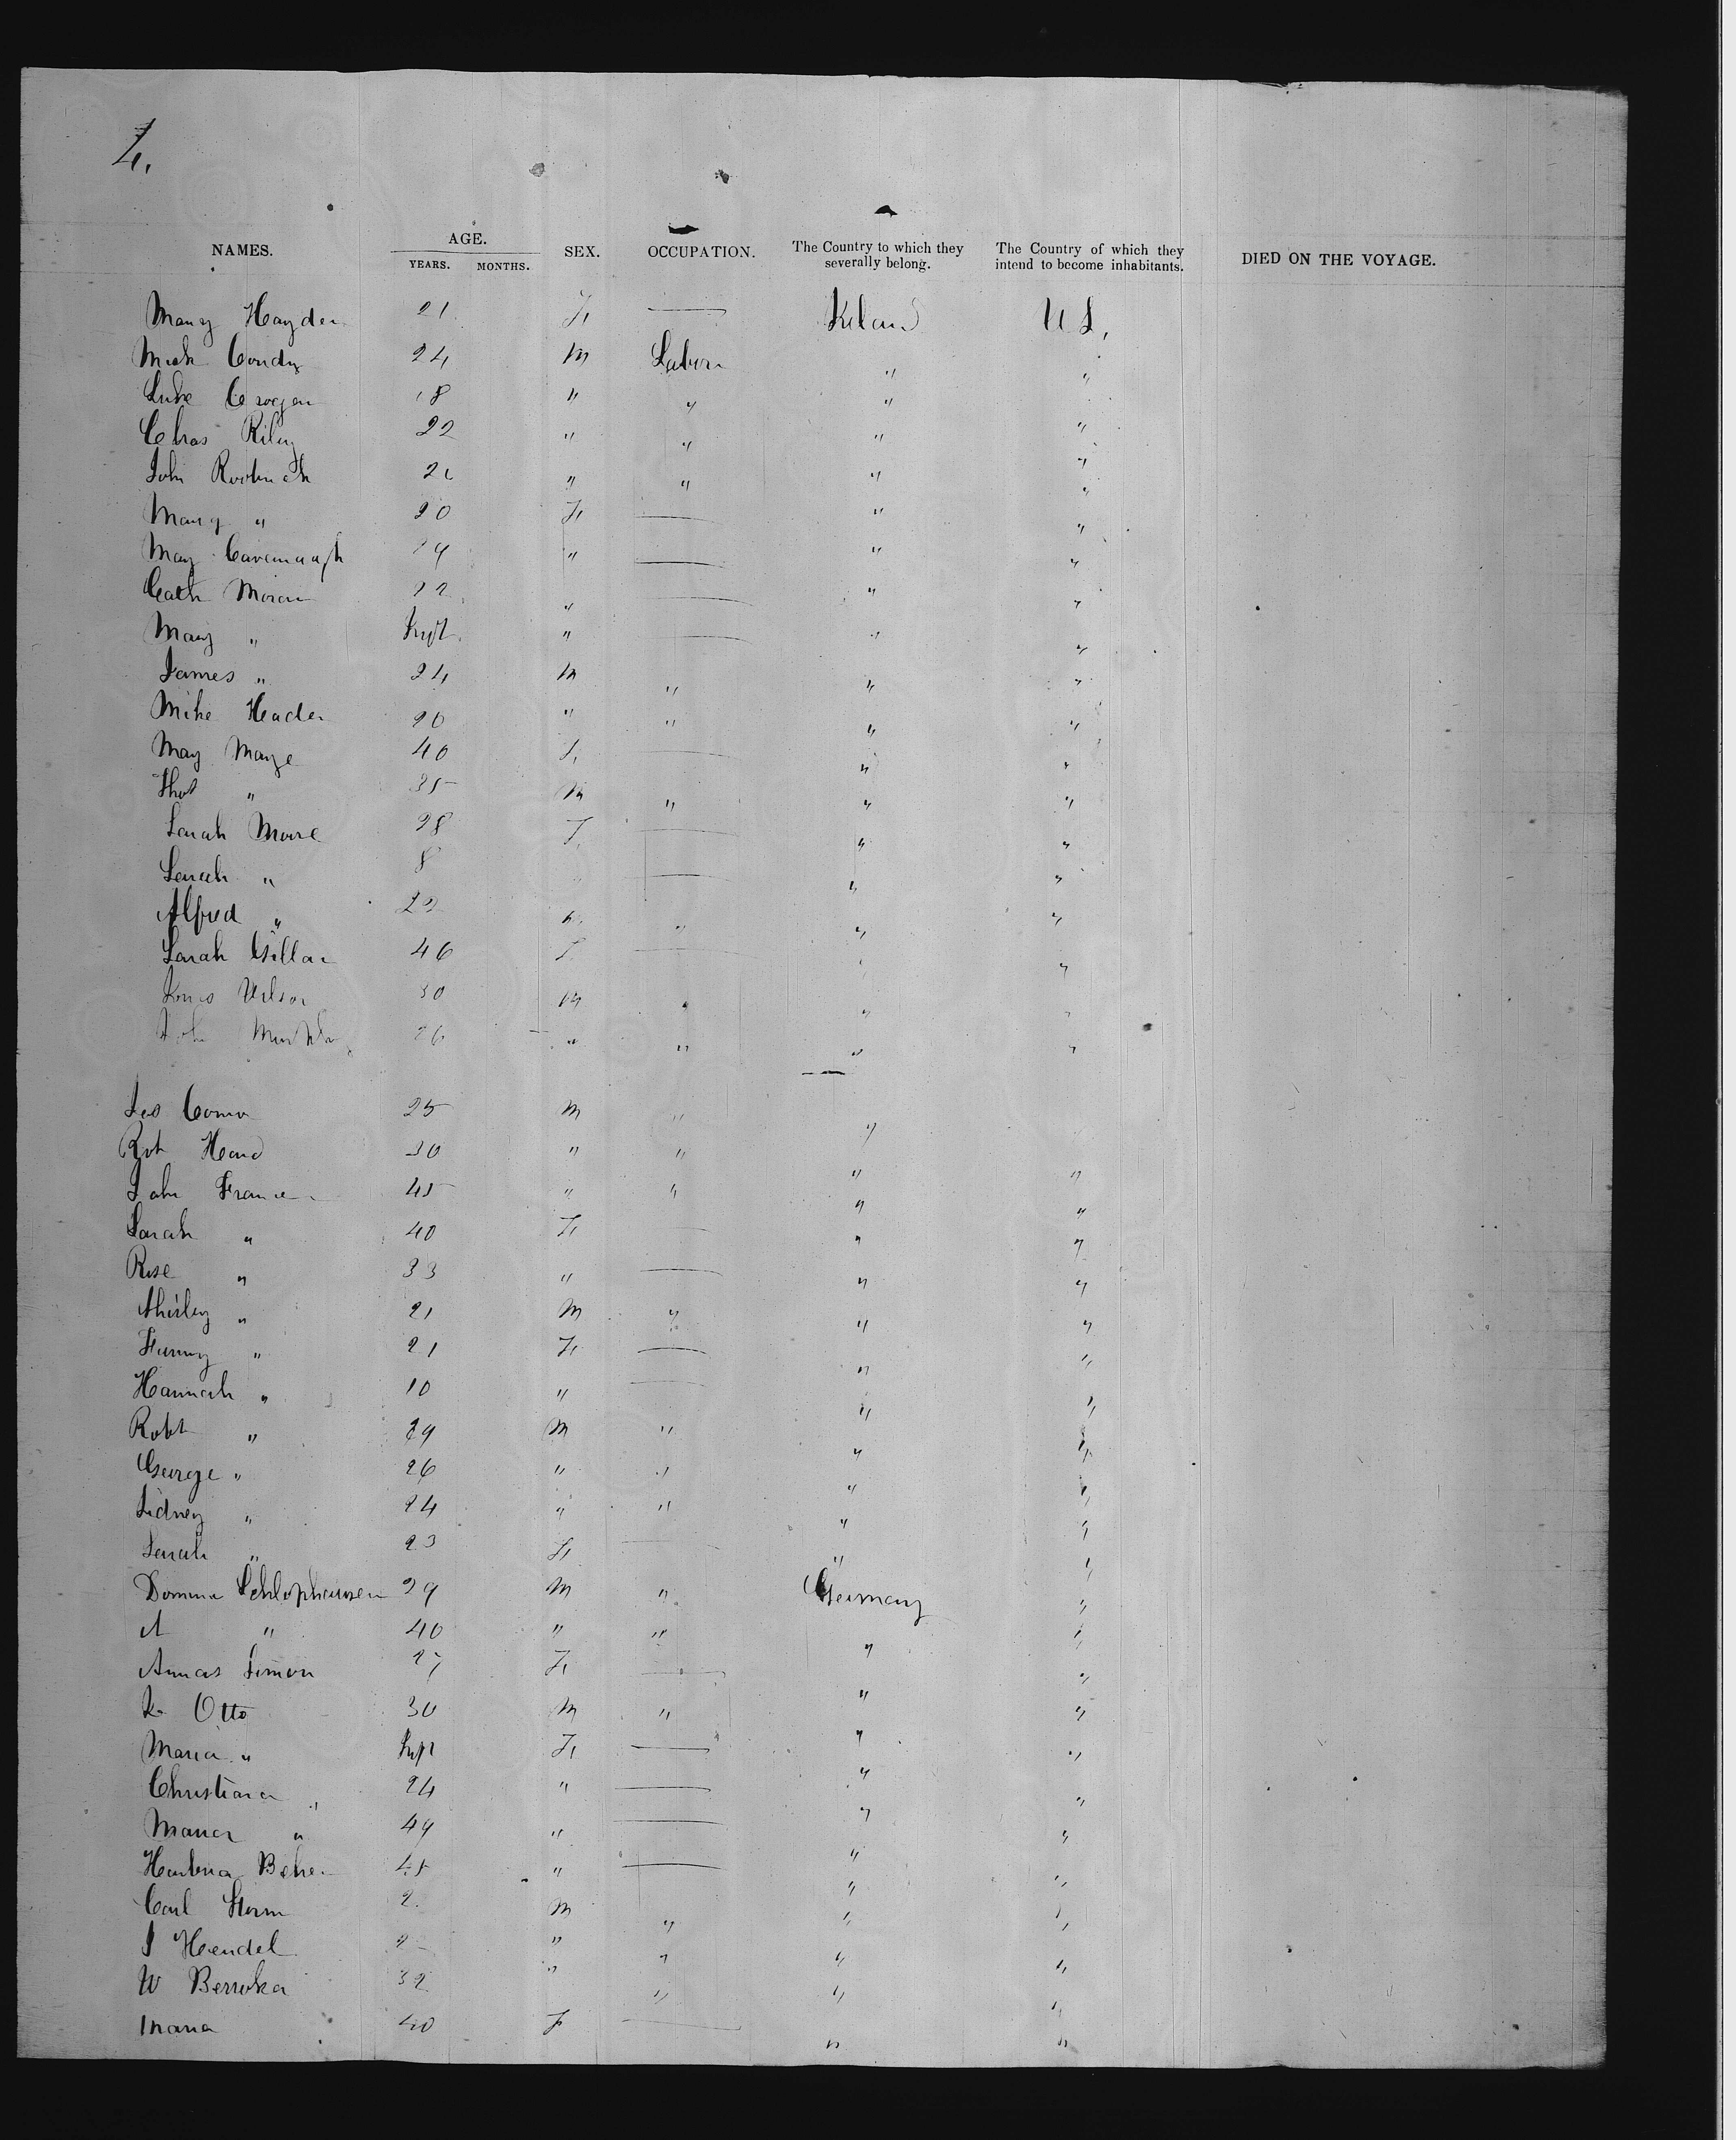 4.
NAMES. AGE. YEARS. MONTHS. SEX. OCCUPATION. The Country to which they severally belong. The Country of which they intend to become inhabitants. DIED ON THE VOYAGE.
Mary Hayden 21 F. — Ireland U S,
Mich Condy 24 M Labor " "
Luke Crogan 18 " " " "
Chas Riley 22 " " " "
John 26 " " " "
Mary " 20 F. — " "
Mary Cavanaugh 19 " — " "
Cath Moran 22 " — " "
Mary " Inft. " — " "
James " 24 M " " "
Mike Header 20 " " " "
May Mayze 40 F. — " "
Thos " 35 M " " "
Sarah Moore 28 F. — " "
Sarah " 8 — " "
Alfred " 22 M. " " "
Sarah Gillan 46 F — "
Wilson 30 M " " "
John 26 " " " "
Geo 25 M " "
Rob Heard 30 " " " "
John France 45 " " " "
Sarah " 40 F. — " "
Rose " 33 " — " "
Shirley " 21 M " " "
Fanny " 21 F. — " "
Hannah " 10 " — " "
Robt " 29 M " " "
George " 26 " " " "
Sidney " 24 " " " "
Sarah " 23 F. — " "
Schlophausen 29 M " Germany "
A " 40 " " " "
Annas Simon 27 F. — " "
Otto 30 M " " "
Maria " Inft F. — " "
Christiana " 24 " — " "
Maria " 49 " — " "
45 " — " "
Carl Storm M " " "
J Hendel " " " "
W 32 " " " "
Maria 40 F — " "